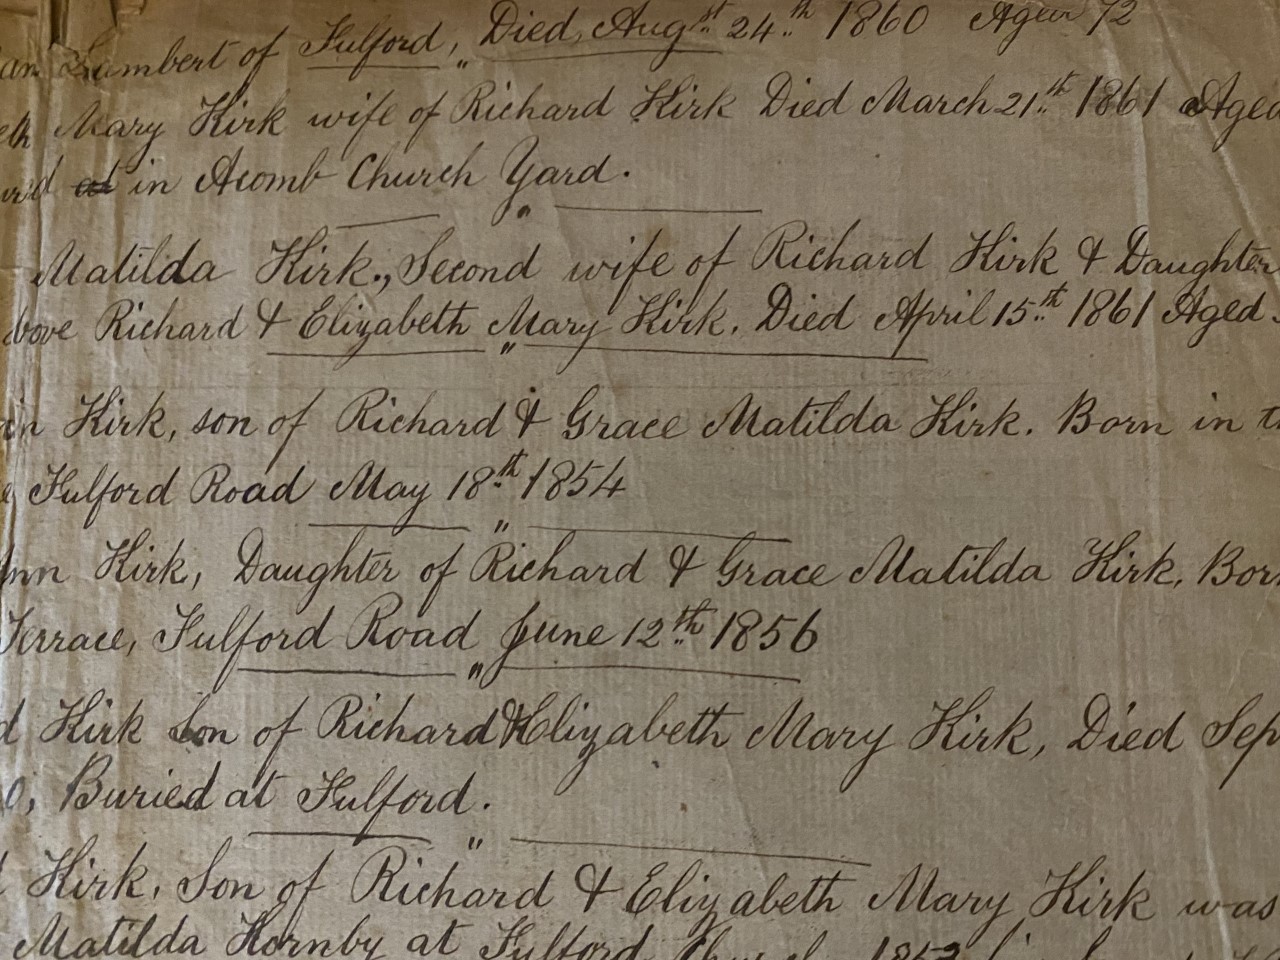 Lambert of Fulford, Died, Augst 24th 1860 Aged 72
Mary Kirk wife of Richard Kirk Died March 21th 1861 Aged
at in Acomb Church Yard.
Matilda Kirk., Second wife of Richard Kirk & Daughter
bove Richard & Elizabeth Mary Kirk. Died April 15th 1861 Aged
Kirk, son of Richard & Grace Matilda Kirk. Born in
Fulford Road May 18th 1854
nn Kirk, Daughter of Richard & Grace Matilda Kirk. Bor
Terrace, Fulford Road June 12th 1856
d Kirk Son of Richard & Elizabeth Mary Kirk, Died Sep
0, Buried at Fulford.
Kirk. Son of Richard & Elizabeth Mary Kirk was
Matilda Hornby at Fulford